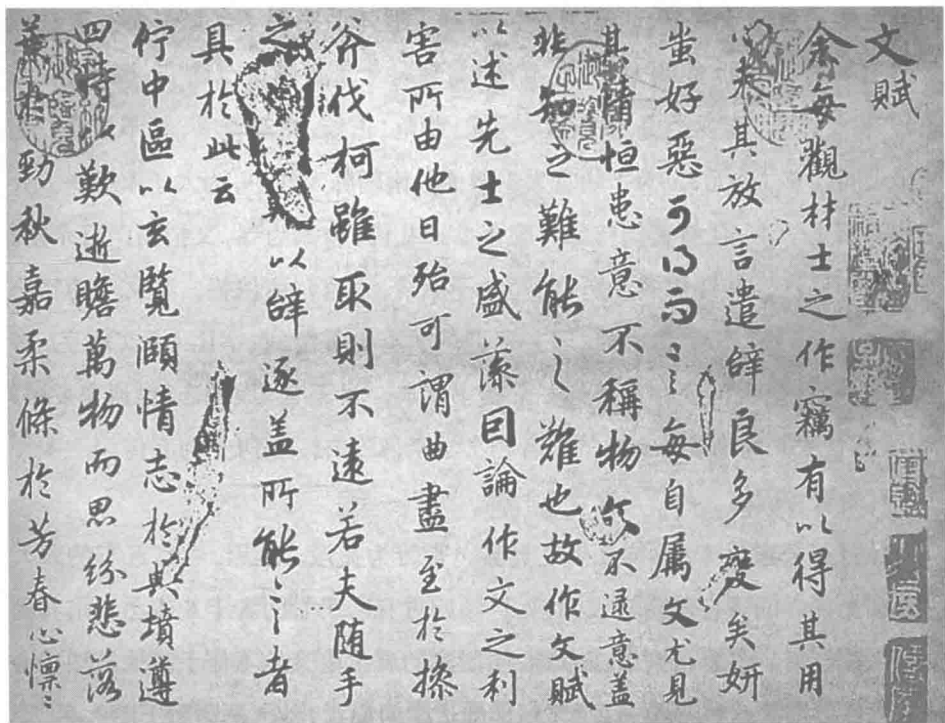 文賦
余每觀材士之作竊有以得其用
心夫其放言遣辤良多變矣妍
蚩好惡可得而言每自屬文尤見
其情恒患意不稱物文不逮意盖
非知之難能之難也故作文賦
以述先士之盛藻因論作文之利
害所由他日殆可謂曲盡至於操
斧伐柯雖取則不遠若夫随手
之以辤逐盖所能言者
具於此云
佇中區以玄覽頤情志於典墳遵
四時以歎逝瞻萬物而思紛悲落
葉於勁秋嘉柔條於芳春心懍〻